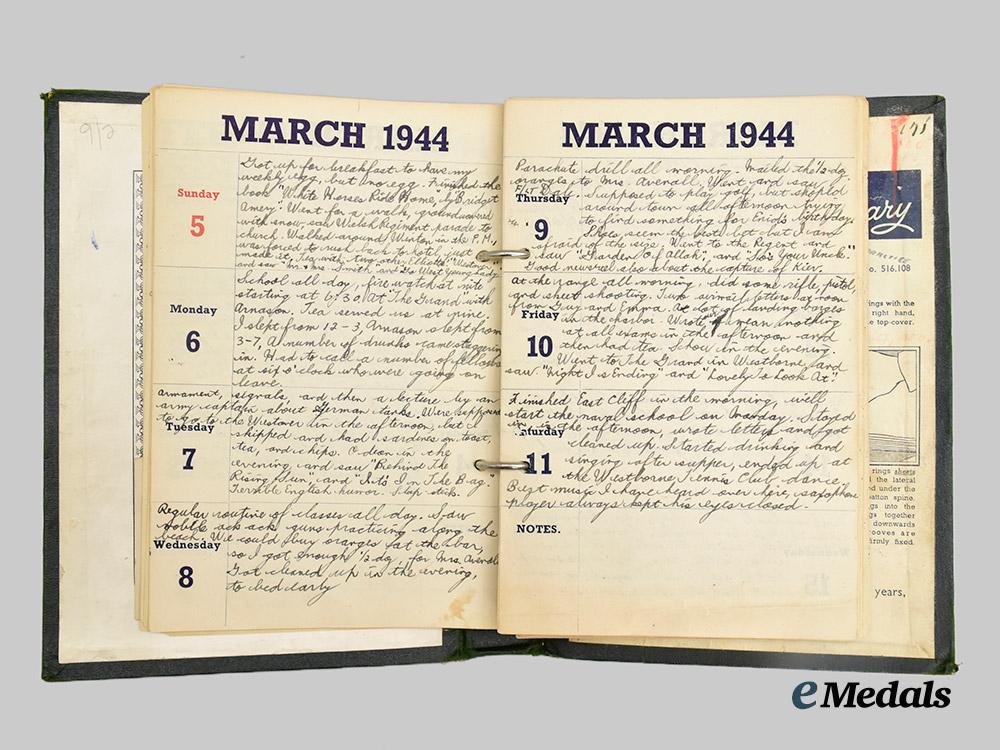 MARCH 1944
Got up for breakfast to have my
weekly egg, but no egg. Finished the
book "White Horses Ride Home, by Bridget
Amery." Went for a walk, ground covered
with snow, saw Welsh Regiment parade to
church. Walked around Winton in the P.M.,
was forced to rush back to hotel, just
made it. Tea with two other Elliotts. "Westover"
and saw "Mr & Mrs. Smith and Go West Young Lady
Sunday
5
School all day, fire watch at nite
starting at 6:30 At The Grand with
Arnason. Tea served us at nine.
I slept from 12-3, Arnason slept from
3-7, A number of drunks came staggering
in. Had to call a number of fellows
at six o'clock who were going on
leave.
Monday
6
armament, signals, and then a lecture by an
army captain about German tanks. Were supposed
to go to the Westover in the afternoon, but I
skipped and had sardines on toast,
tea, and chips. Odeon in the
evening, and saw "Behind The
Rising Sun", and "It's In The Bag."
Terrible English humor. Slap stick.
Tuesday
7
Regular routine of classes all day. Saw
ack ack guns practicing along the
beach. We could buy oranges at the bar,
so I got enough ½ dg. for Mrs. Averall
Got cleaned up in the evening,
to bed early
Wednesday
8
MARCH 1944
Parachute drill all morning. Mailed the ½ dg.
oranges to Mrs. Averall, Went and saw
F/Lt Supposed to play golf, but shopped
around town all afternoon trying
to find something for Enid's birthday.
seem the best bet but I am
afraid of the size. Went to the Regent and
saw "Garden Of Allah", and "So's Your Uncle."
Good newsreel also about the capture of Kiev.
Thursday
9
At the range all morning, did some rifle, pistol,
and sheet shooting. Two airmail letters
from Guy and Emma. A lot of landing barges
in the harbor. Wrote mean nothing
at all exams in the afternoon and
then had tea. Show in the evening.
Went to The Grand in Westborne, and
saw "Night Is Ending" and "Lovely To Look At."
Friday
10
Finished East Cliff in the morning, we'll
start the naval school on Monday. Stayed
in in the afternoon, wrote letters and got
cleaned up. Started drinking and
singing after supper, ended up at
the Westborne Tennis Club dance.
Best music I have heard over here, saxophone
player always kept his eyes closed.
Saturday
11
NOTES.
ary
o. 516.108
rings with the
right hand,
e top-cover.
rings sheets
the lateral
ed under the
button spine.
gs into the
gs together
downwards
ooves are
irmly fixed.
years,
eMedals